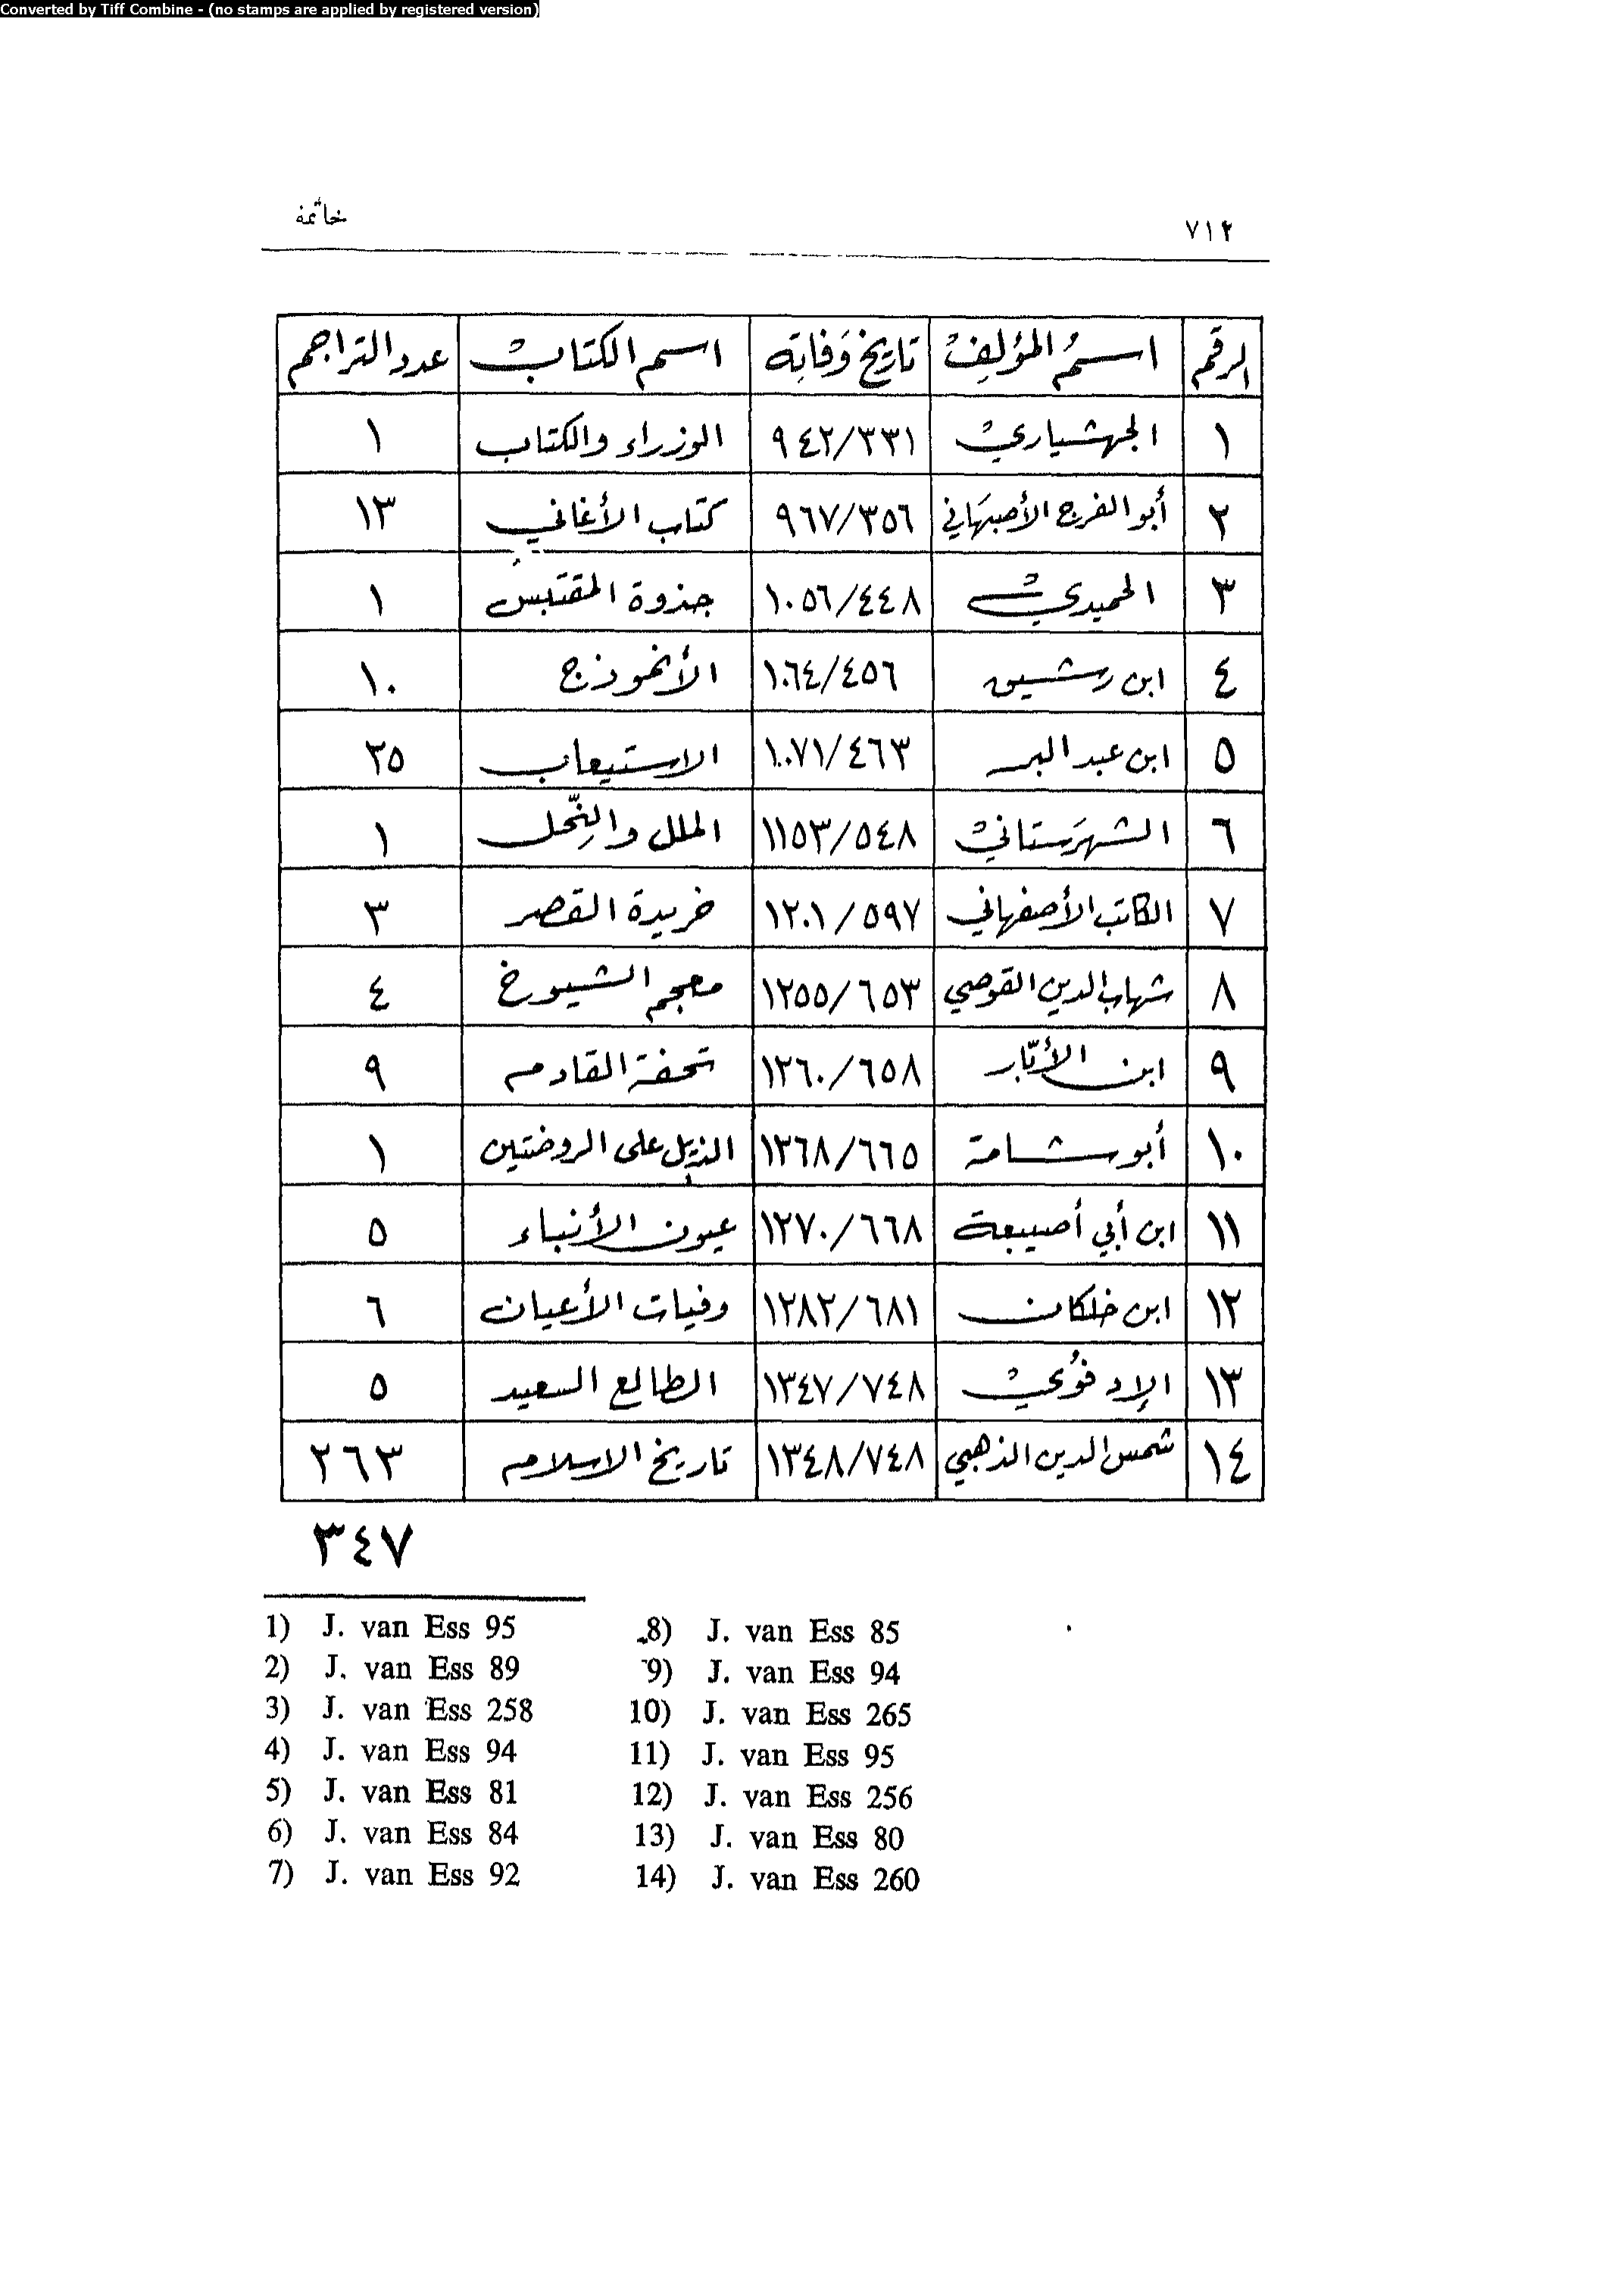 Converted by Tiff Combine - (no stamps are applied by registered version)
٧١٢ خاتمة
الرقم اسمُ المؤلِف تاريخ وَفاتِه اسم الكتاب عدد التراجم
١ الجهشياري ٩٤٢/٣٣١ الوزراء والكتاب ١
٢ أبو الفرج الأصبهَاني ٩٦٧/٣٥٦ كتاب الأغاني ١٣
٣ الحميدي ١٠٥٦/٤٤٨ جذوة المقتَبس ١
٤ ابن رشيق ١٠٦٤/٤٥٦ الأنموذج ١٠
٥ ابن عبد البر ١٠٧١/٤٦٣ الاستيعاب ٢٥
٦ الشهرَستاني ١١٥٣/٥٤٨ الملل والنِّحل ١
٧ الكاتب الأصفهاني ١٢٠١/٥٩٧ خريدة القصر ٣
٨ شهاب الدين القوصي ١٢٥٥/٦٥٣ معجم الشيوخ ٤
٩ ابن الأبّار ١٢٦٠/٦٥٨ تحفة القادم ٩
١٠ أبو شامة ١٢٦٨/٦٦٥ الذيل على الروضتين ١
١١ ابن أبي أصيبعة ١٢٧٠/٦٦٨ عيون الأنباء ٥
١٢ ابن خلكان ١٢٨٢/٦٨١ وفيات الأعيان ٦
١٣ الإدفُوي ١٣٤٧/٧٤٨ الطالع السعيد ٥
١٤ شمس الدين الذهبي ١٣٤٨/٧٤٨ تاريخ الاسلام ٢٦٣
٣٤٧
1) J. van Ess 95
2) J. van Ess 89
3) J. van Ess 258
4) J. van Ess 94
5) J. van Ess 81
6) J. van Ess 84
7) J. van Ess 92
8) J. van Ess 85
9) J. van Ess 94
10) J. van Ess 265
11) J. van Ess 95
12) J. van Ess 256
13) J. van Ess 80
14) J. van Ess 260